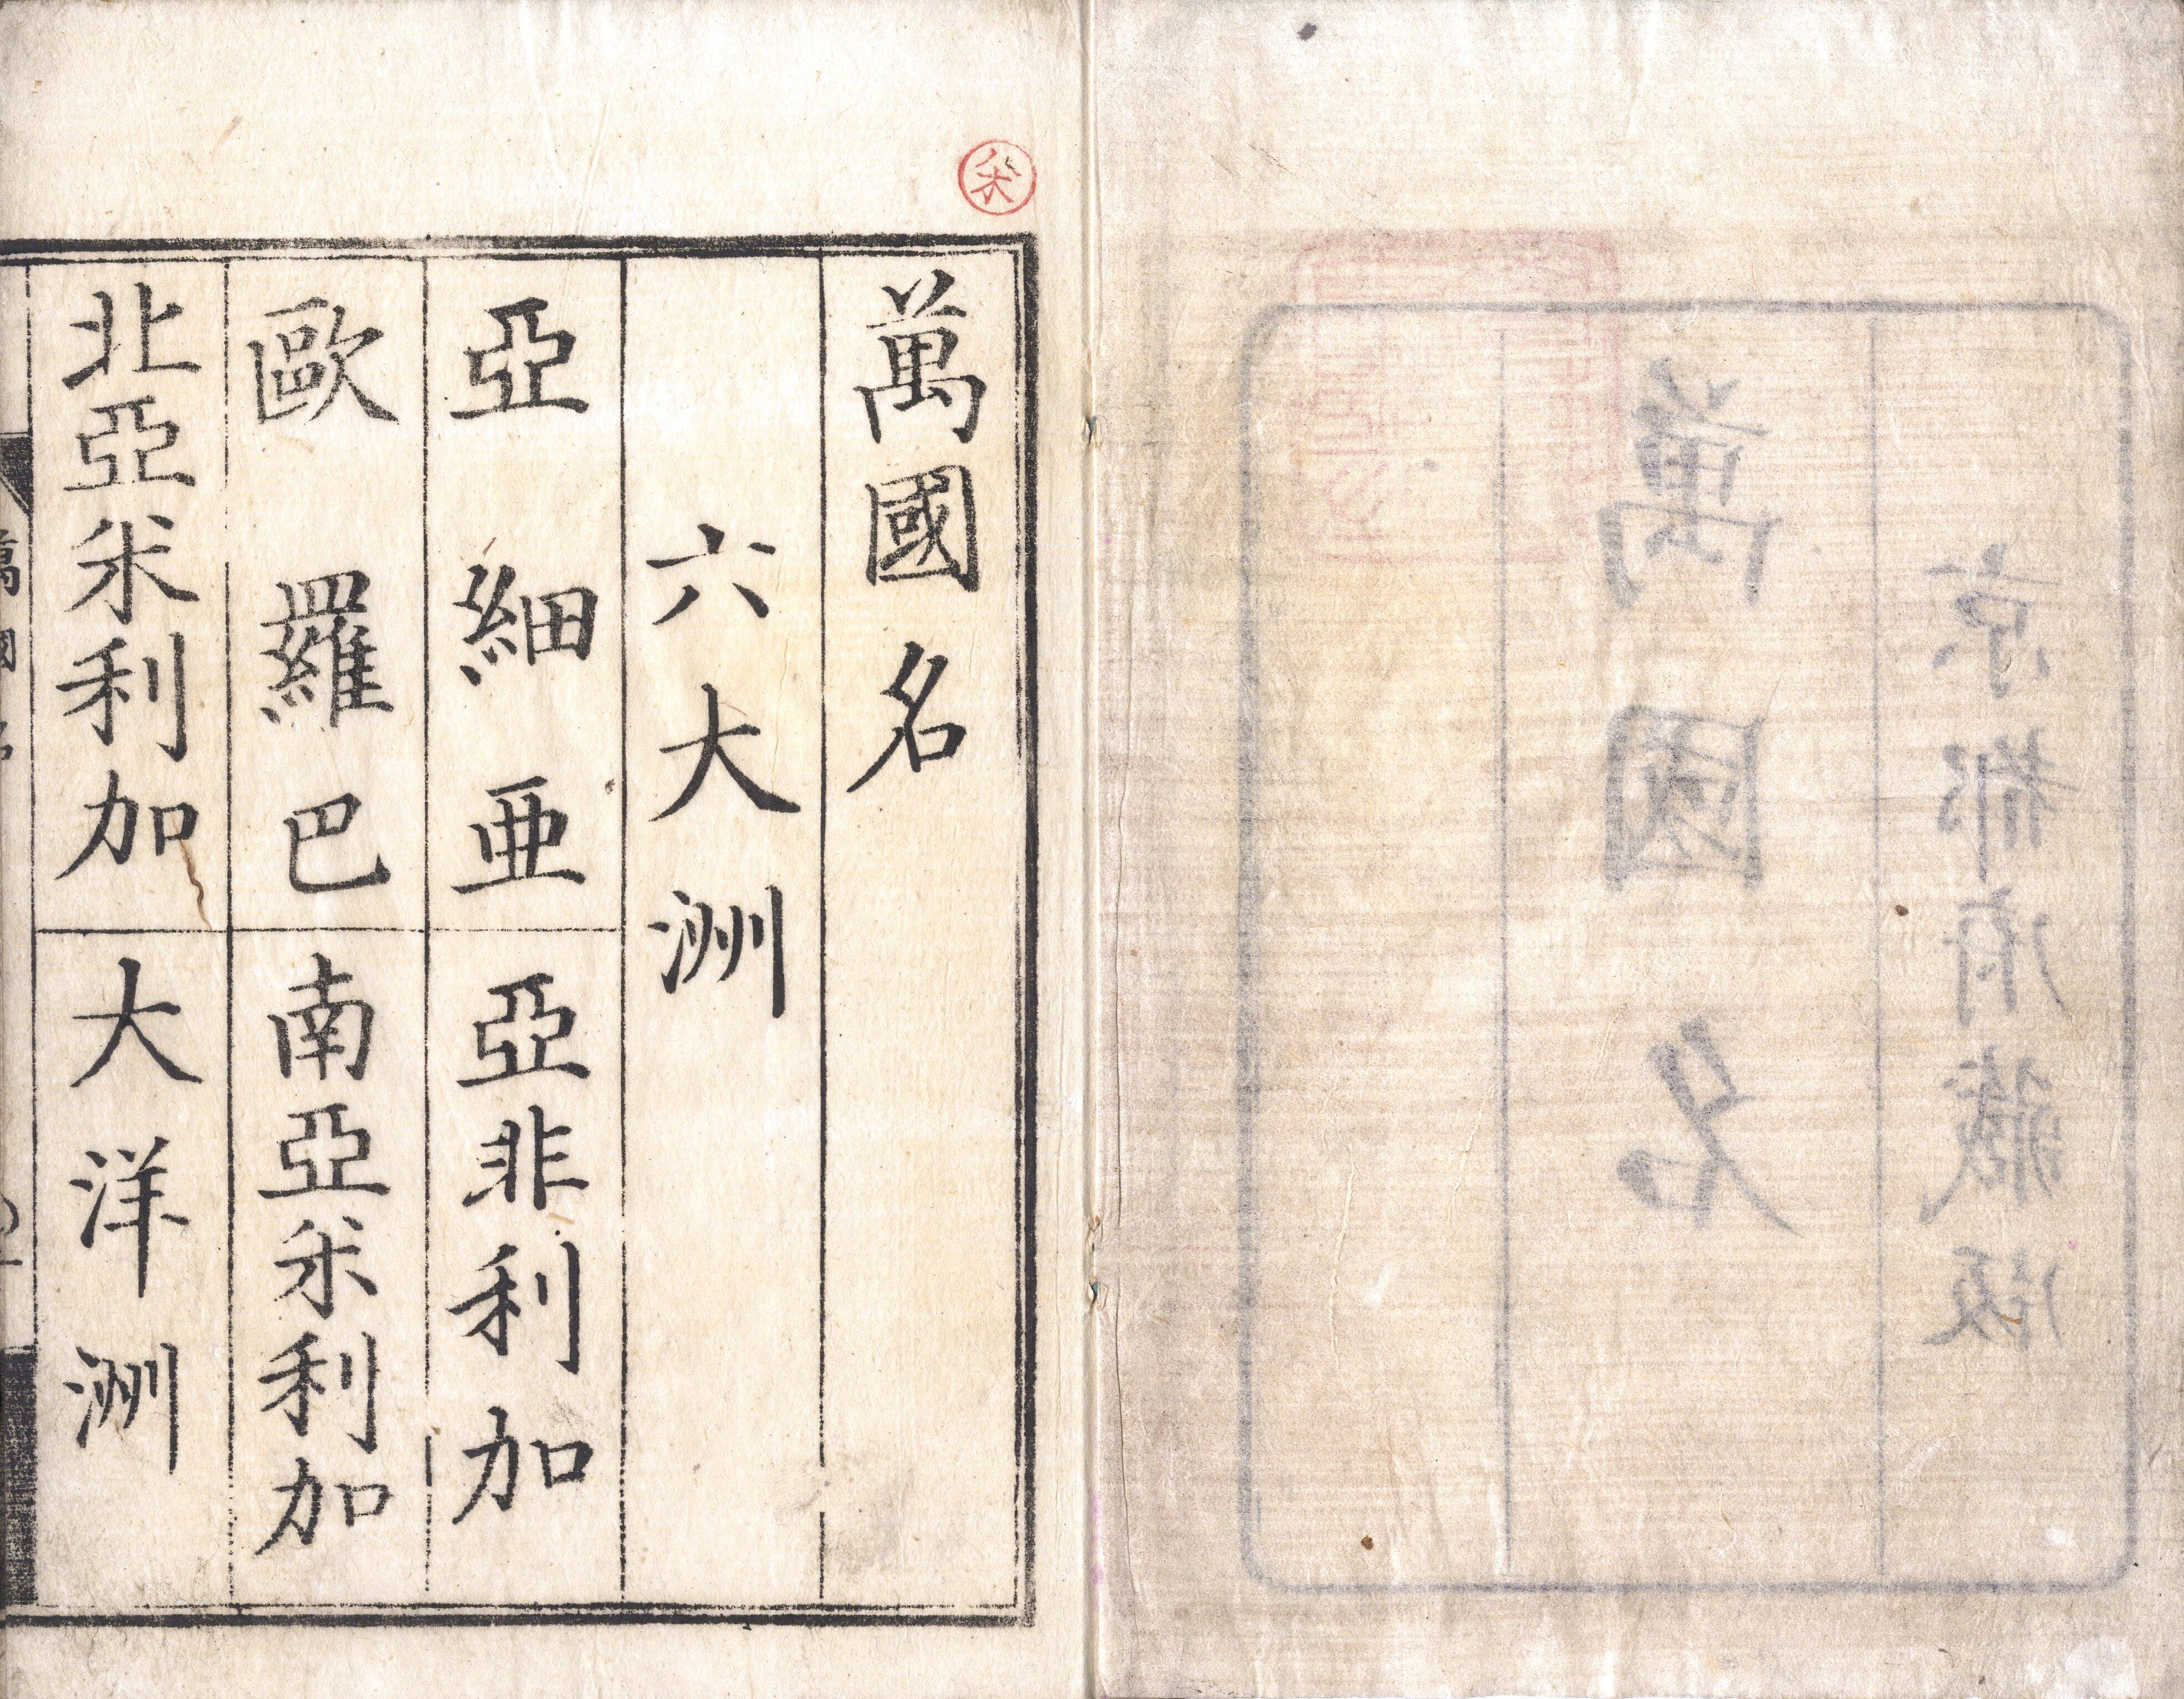 京都府藏版
萬國名
萬國名
六大洲
亞細亜
亞非利加
歐羅巴
南亞米利加
北亞米利加
大洋洲